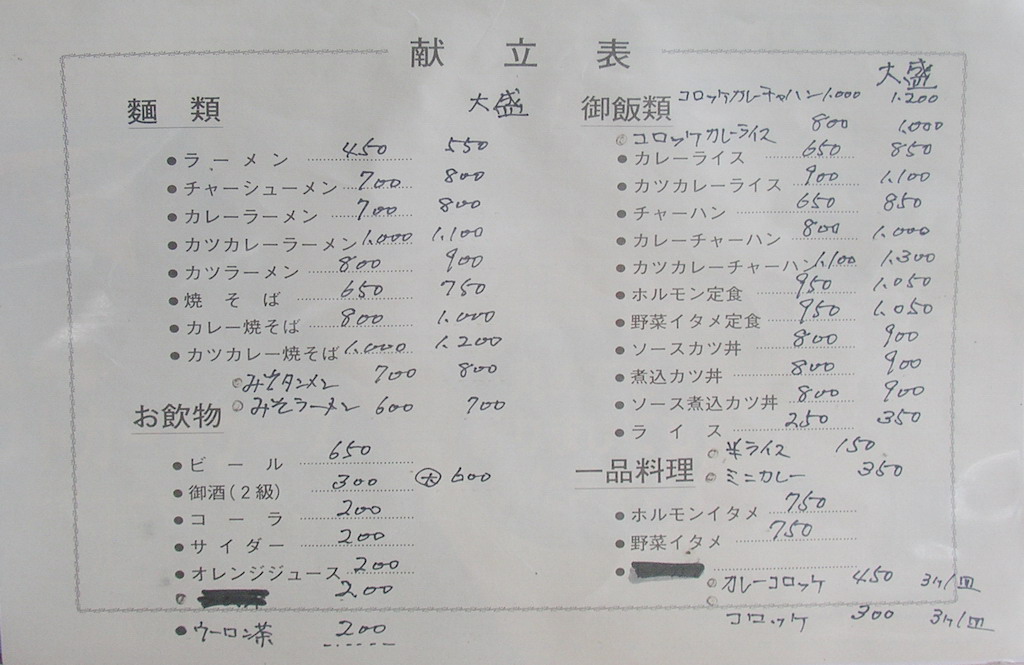 献立表
麺類 大盛
●ラーメン 450 550
●チャーシューメン 700 800
●カレーラーメン 700 800
●カツカレーラーメン 1.000 1.100
●カツラーメン 800 900
●焼そば 650 750
●カレー焼そば 800 1.000
●カツカレー焼そば 1.000 1.200
みそタンメン 700 800
みそラーメン 600 700
お飲物
●ビール 650
●御酒(2級) 300 大 600
●コーラ 200
●サイダー 200
●オレンジジュース 200
● 200
●ウーロン茶 200
大盛
御飯類 コロッケカレーチャハン 1.000 1.200
コロッケカレーライス 800 1.000
●カレーライス 650 850
●カツカレーライス 900 1.100
●チャーハン 650 850
●カレーチャーハン 800 1.000
●カツカレーチャーハン 1.100 1.300
●ホルモン定食 950 1.050
●野菜イタメ定食 950 1.050
●ソースカツ丼 800 900
●煮込カツ丼 800 900
●ソース煮込カツ丼 800 900
●ライス 250 350
半ライス 150
一品料理 ミニカレー 350
●ホルモンイタメ 750
●野菜イタメ 750
●
カレーコロッケ 450 3ケ/皿
コロッケ 300 3ケ/皿